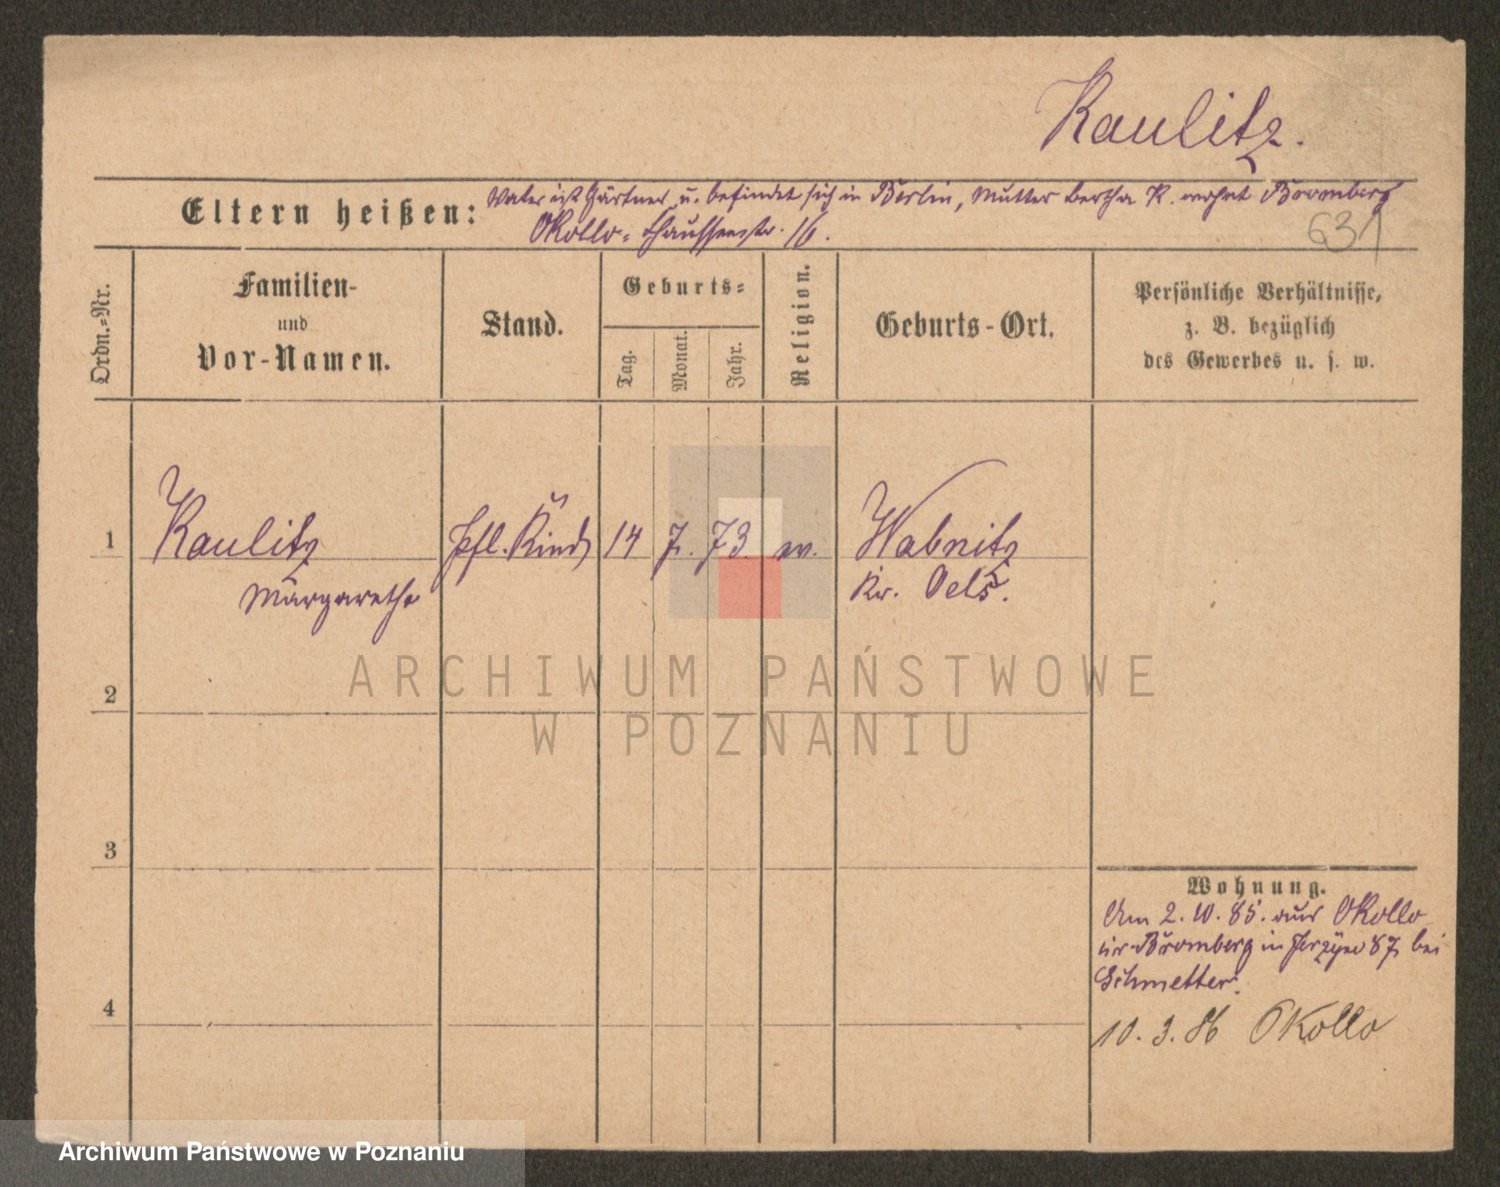 Kaulitz.
Eltern heißen: Vater ist Gärtner u. befindet sich in Berlin, Mutter Bertha K. wohnt Bromberg
Okollo-Chausseestr. 16.
631
Ordn.-Nr.
Familien-
und
Vor-Namen.
Stand.
Geburts-
Tag.
Monat.
Jahr.
Religion.
Geburts-Ort.
Persönliche Verhältnisse,
z. B. bezüglich
des Gewerbes u. s. w.
1 Kaulitz Pfl. Kind 14 7. 73 ev. Wabnitz
Margarethe Kr. Oels.
ARCHIWUM PAŃSTWOWE
W POZNANIU
2
3
4
Wohnung.
Am 2. 10. 85. aus Okollo
bei Bromberg in Jerzyce 87 bei
Schmetter.
10. 3. 86 Okollo
Archiwum Państwowe w Poznaniu